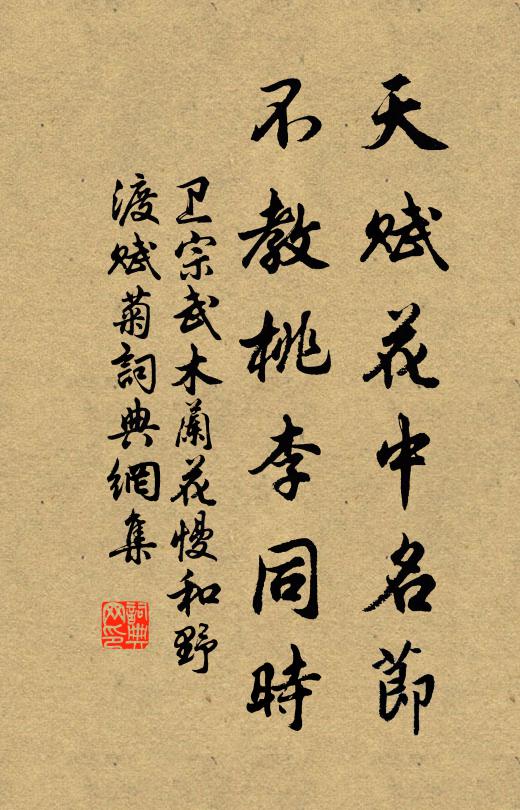 天賦花中名節
不教桃李同時
卫宗武木蘭花慢和野
渡賦菊詞典網集
詞典
网印